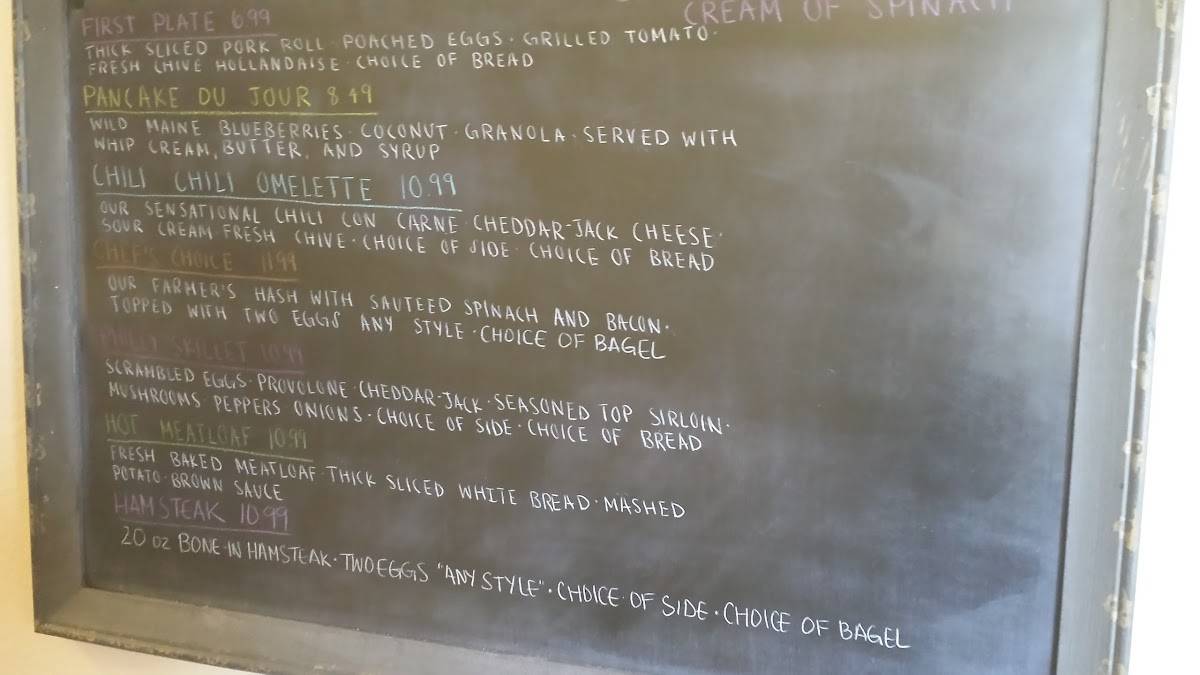 CREAM OF SPINACH
FIRST PLATE 6.99
THICK SLICED PORK ROLL · POACHED EGGS · GRILLED TOMATO ·
FRESH CHIVE HOLLANDAISE · CHOICE OF BREAD
PANCAKE DU JOUR 8.49
WILD MAINE BLUEBERRIES · COCONUT · GRANOLA · SERVED WITH
WHIP CREAM, BUTTER, AND SYRUP
CHILI CHILI OMELETTE 10.99
OUR SENSATIONAL CHILI CON CARNE · CHEDDAR-JACK CHEESE ·
SOUR CREAM · FRESH CHIVE · CHOICE OF SIDE · CHOICE OF BREAD
CHEF'S CHOICE 11.99
OUR FARMER'S HASH WITH SAUTEED SPINACH AND BACON ·
TOPPED WITH TWO EGGS ANY STYLE · CHOICE OF BAGEL
PHILLY SKILLET 10.99
SCRAMBLED EGGS · PROVOLONE · CHEDDAR-JACK · SEASONED TOP SIRLOIN ·
MUSHROOMS PEPPERS ONIONS · CHOICE OF SIDE · CHOICE OF BREAD
HOT MEATLOAF 10.99
FRESH BAKED MEATLOAF · THICK SLICED WHITE BREAD · MASHED
POTATO · BROWN SAUCE
HAMSTEAK 10.99
20 OZ BONE-IN HAMSTEAK · TWO EGGS "ANY STYLE" · CHOICE OF SIDE · CHOICE OF BAGEL